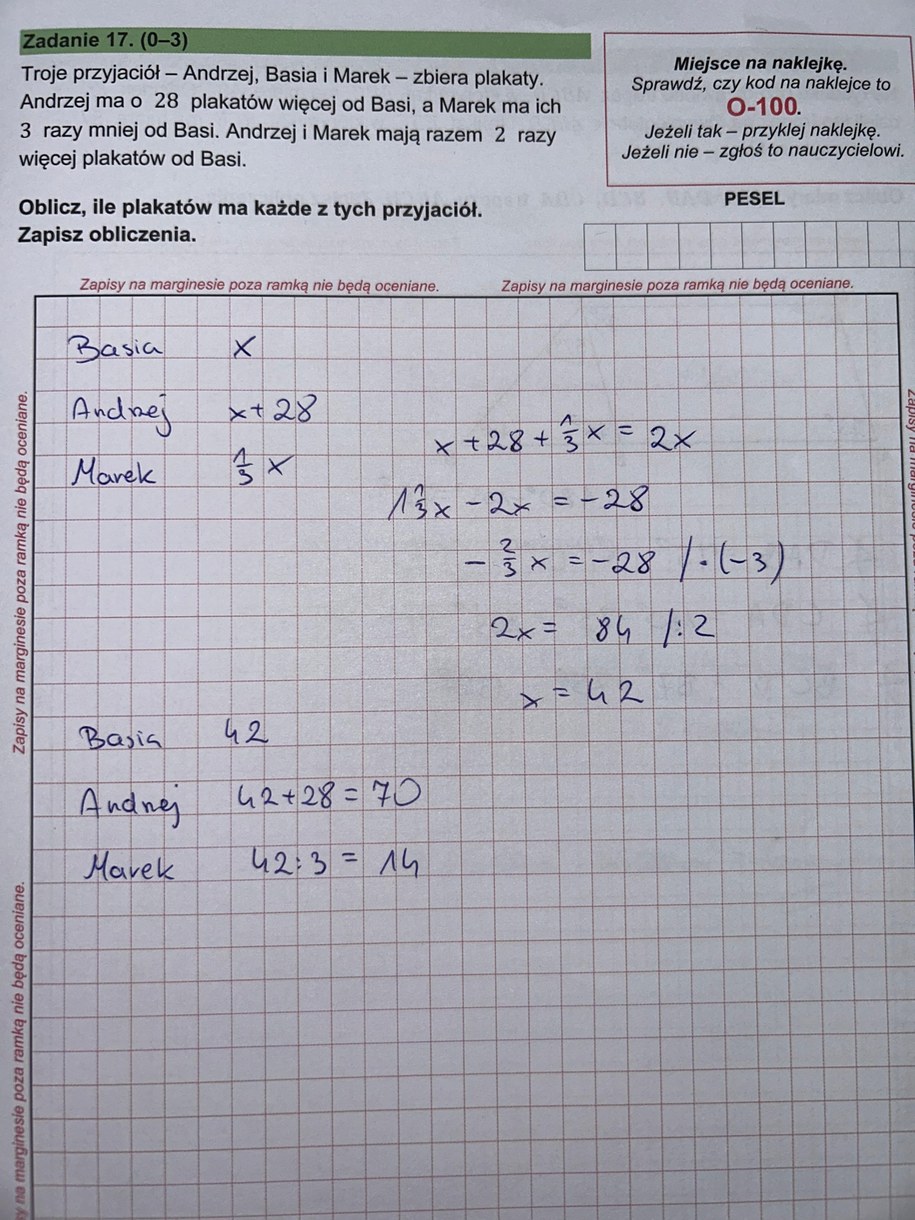 Zadanie 17. (0–3)
Troje przyjaciół – Andrzej, Basia i Marek – zbiera plakaty.
Andrzej ma o 28 plakatów więcej od Basi, a Marek ma ich
3 razy mniej od Basi. Andrzej i Marek mają razem 2 razy
więcej plakatów od Basi.
Oblicz, ile plakatów ma każde z tych przyjaciół.
Zapisz obliczenia.
Miejsce na naklejkę.
Sprawdź, czy kod na naklejce to
O-100.
Jeżeli tak – przyklej naklejkę.
Jeżeli nie – zgłoś to nauczycielowi.
PESEL
Zapisy na marginesie poza ramką nie będą oceniane.
Zapisy na marginesie poza ramką nie będą oceniane.
Zapisy na marginesie poza ramką nie będą oceniane.
Basia x
Andrzej x+28
Marek 1/3 x
x+28+1/3x = 2x
1 1/3x - 2x = -28
- 2/3 x = -28 /·(-3)
2x = 84 /:2
x = 42
Basia 42
Andrzej 42+28 = 70
Marek 42:3 = 14